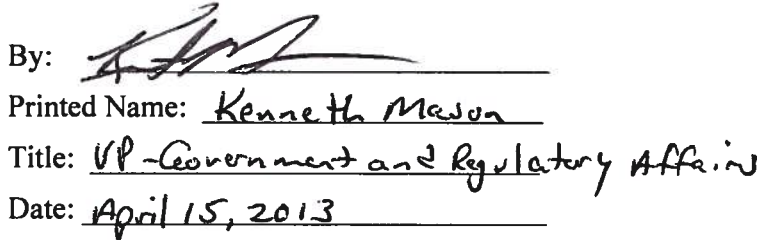 By:
Printed Name: Kenneth Mason
Title: VP-Government and Regulatory Affairs
Date: April 15, 2013